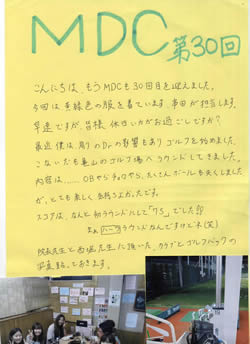 MDC 第30回
こんにちは、もうMDCも30回目を迎えました。
今回は黄緑色の服を着ています、串田が担当します。
早速ですが、皆様、休日いかがお過ごしですか？
最近僕は周りのDrの影響もありゴルフを始めました。
こないだも亀山のゴルフ場へラウンドしてきました。
内容は……OBやらチョロやら、たくさんボールも失くしました
が、とても楽しく
スコアは、なんと初ラウンドにして「75」でした
ハーフラウンドなんですけどネ(笑)
院長先生と西堀先生に頂いた、クラブとゴルフバックの
写真 ておきます。